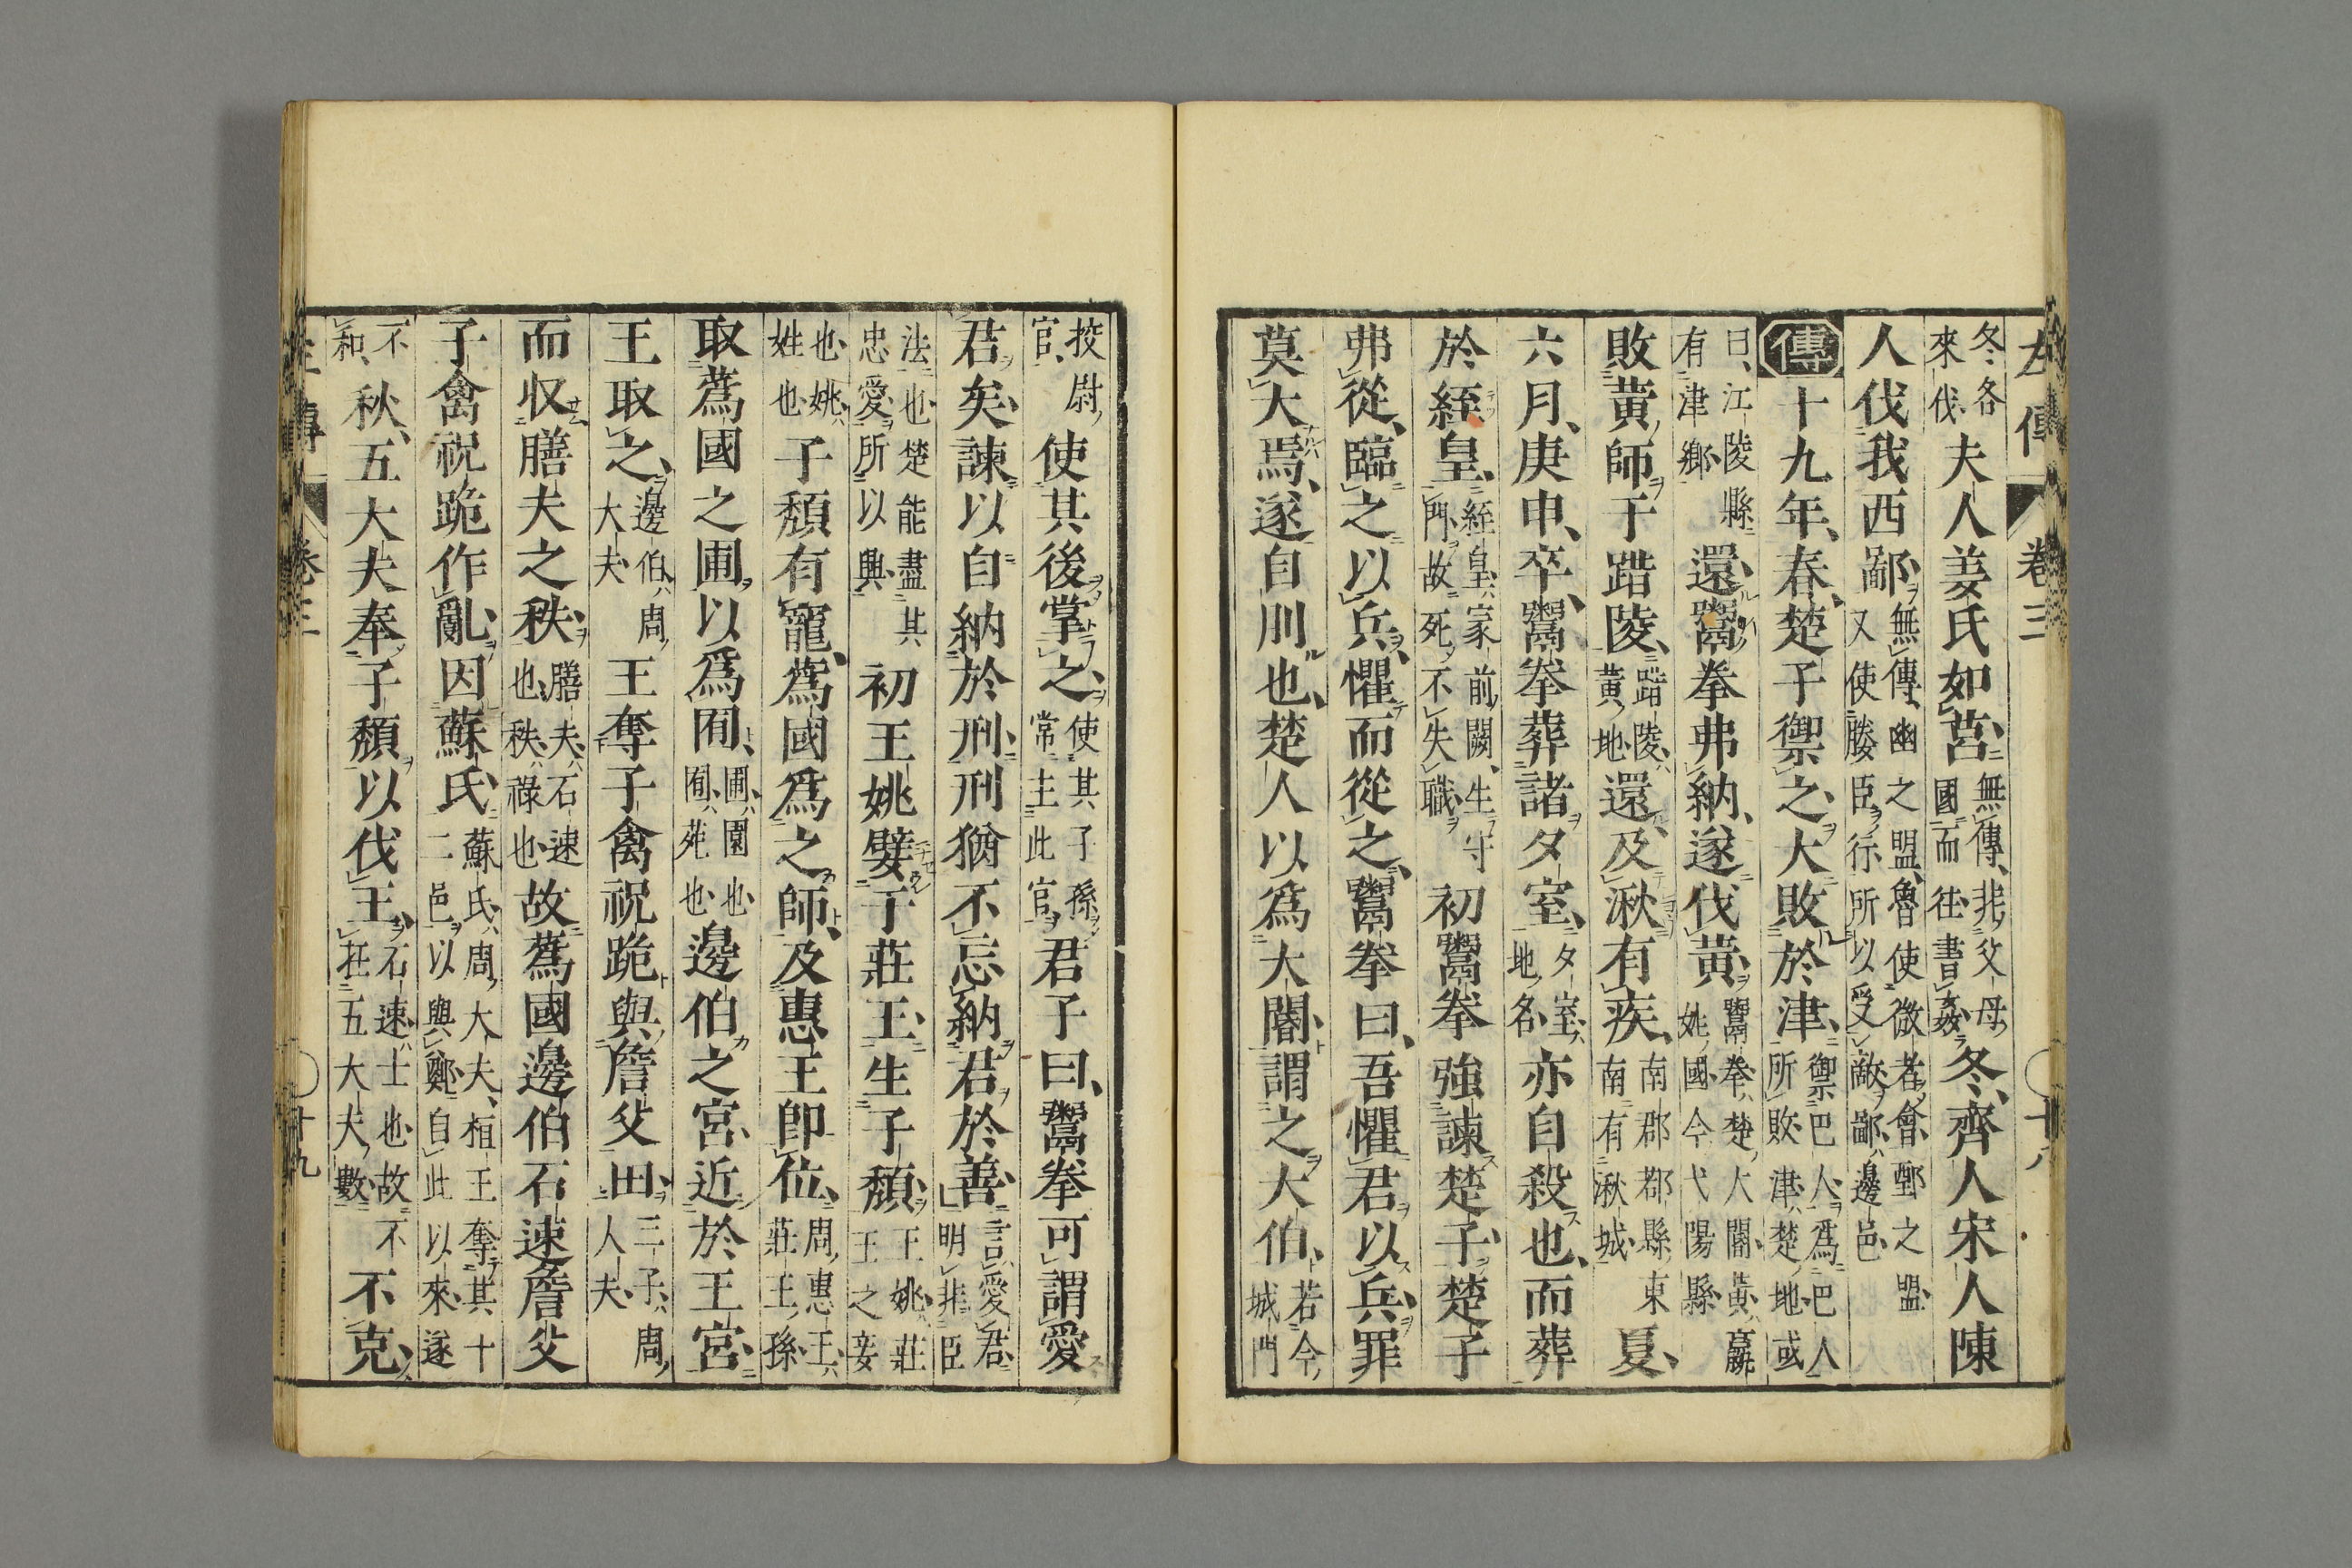 左傳 卷三 十八
冬各來伐夫人姜氏如莒無傳非父母國而往書姦冬齊人宋人陳
人伐我西鄙無傳幽之盟魯使微者會鄄之盟又使媵臣行所以受敵鄙邊邑
傳十九年春楚子禦之大敗於津禦巴人爲巴人所敗津楚地或
曰江陵縣有津鄉還鬻拳弗納遂伐黃鬻拳楚大閽黃嬴姓國今弋陽縣
敗黃師于踖陵踖陵黃地還及湫有疾南郡鄀縣東南有湫城夏
六月庚申卒鬻拳葬諸夕室夕室地名亦自殺也而葬
於絰皇絰皇冢前闕生守門故死不失職初鬻拳強諫楚子楚子
弗從臨之以兵懼而從之鬻拳曰吾懼君以兵罪
莫大焉遂自刖也楚人以爲大閽謂之大伯若今城門
挍尉官使其後掌之使其子孫常主此官君子曰鬻拳可謂愛
君矣諫以自納於刑刑猶不忘納君於善言愛君明非臣
法也楚能盡其忠愛所以興初王姚嬖于莊王生子頹王姚莊王之妾
也姚姓也子頹有寵蔿國爲之師及惠王卽位周惠王莊王孫
取蔿國之圃以爲囿圃園也囿苑也邊伯之宮近於王宮
王取之邊伯周大夫王奪子禽祝跪與詹父田三子周大夫
而收膳夫之秩膳夫石速也秩祿也故蔿國邊伯石速詹父
子禽祝跪作亂因蘇氏蘇氏周大夫桓王奪其十二邑以與鄭自此以來遂
不和秋五大夫奉子頹以伐王石速士也故不在五大夫數不克
左傳 卷三 十九